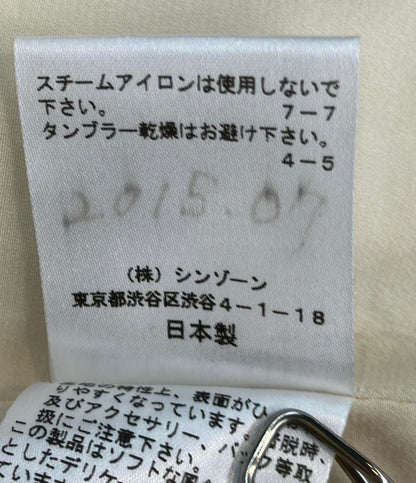 スチームアイロンは使用しないで
下さい。 7-7
タンブラー乾燥はお避け下さい。
4-5
2015.07
(株) シンゾーン
東京都渋谷区渋谷4-1-18
日本製
の特性上、表面がひ
りやすくなっています。
及びアクセサリー、
扱にご注意下さい。
この製品はソフトな風合
としたデリケ
ています
脱時、
バッグ等取